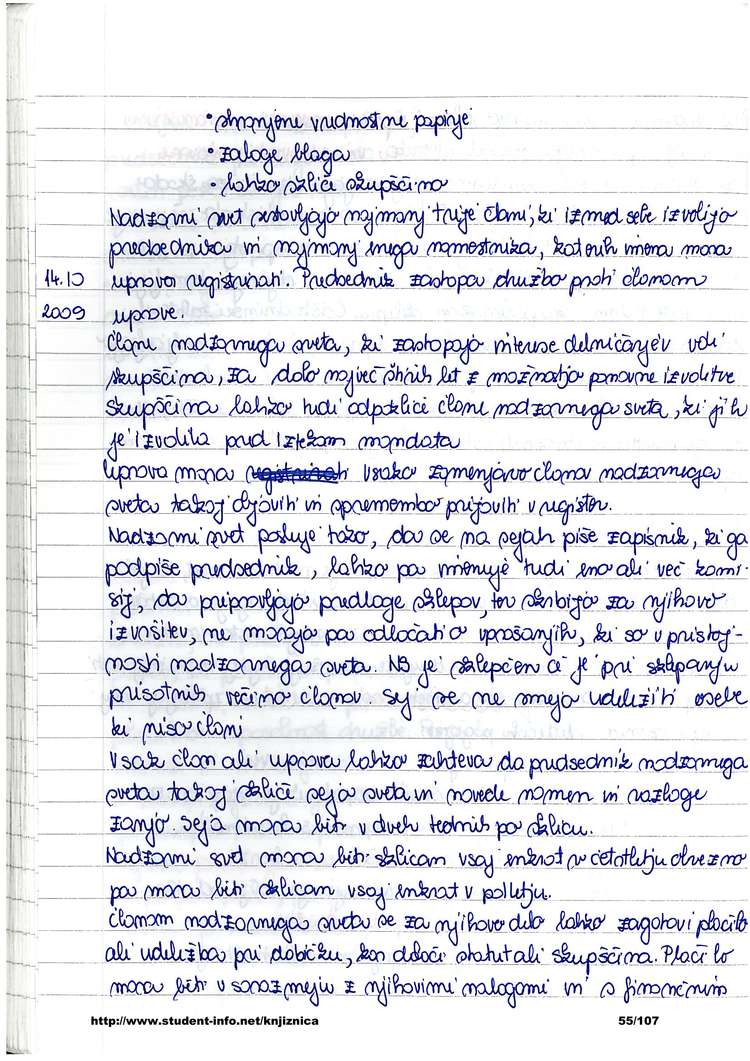 • shranjene vrednostne papirje
• zaloge blaga
• lahko skliče skupščino
Nadzorni svet sestavljajo najmanj trije člani, ki izmed sebe izvolijo
predsednika in najmanj enega namestnika, katerih imena mora
14.10 uprava registrirati. Predsednik zastopa družbo proti članom
2009 uprave.
Člane nadzornega sveta, ki zastopajo interese delničarjev voli
skupščina, za dobo največ štirih let z možnostjo ponovne izvolitve
Skupščina lahko tudi odpokliče člane nadzornega sveta, ki jih
je izvolila pred iztekom mandata
Uprava mora registrirati vsako zamenjavo člana nadzornega
sveta takoj objaviti in spremembo prijaviti v register.
Nadzorni svet posluje tako, da se na sejah piše zapisnik, ki ga
podpiše predsednik, lahko pa imenuje tudi eno ali več komi-
sij, da pripravljajo predloge sklepov, ter skrbijo za njihovo
izvršitev, ne morejo pa odločati o vprašanjih, ki so v pristoj-
nosti nadzornega sveta. NS je sklepčen če je pri sklepanju
prisotnih večina članov. Sej se ne smejo udeležiti osebe
ki niso člani
Vsak član ali uprava lahko zahteva da predsednik nadzornega
sveta takoj skliče sejo sveta in navede namen in razloge
zanjo. Seja mora biti v dveh tednih po sklicu.
Nadzorni svet mora biti sklican vsaj enkrat v četrtletju obvezno
pa mora biti sklican vsaj enkrat v polletju.
Članom nadzornega sveta se za njihovo delo lahko zagotovi plačilo
ali udeležba pri dobičku, kar določi statut ali skupščina. Plačilo
mora biti v sorazmerju z njihovimi nalogami in s finančnim
http://www.student-info.net/knjiznica 55/107